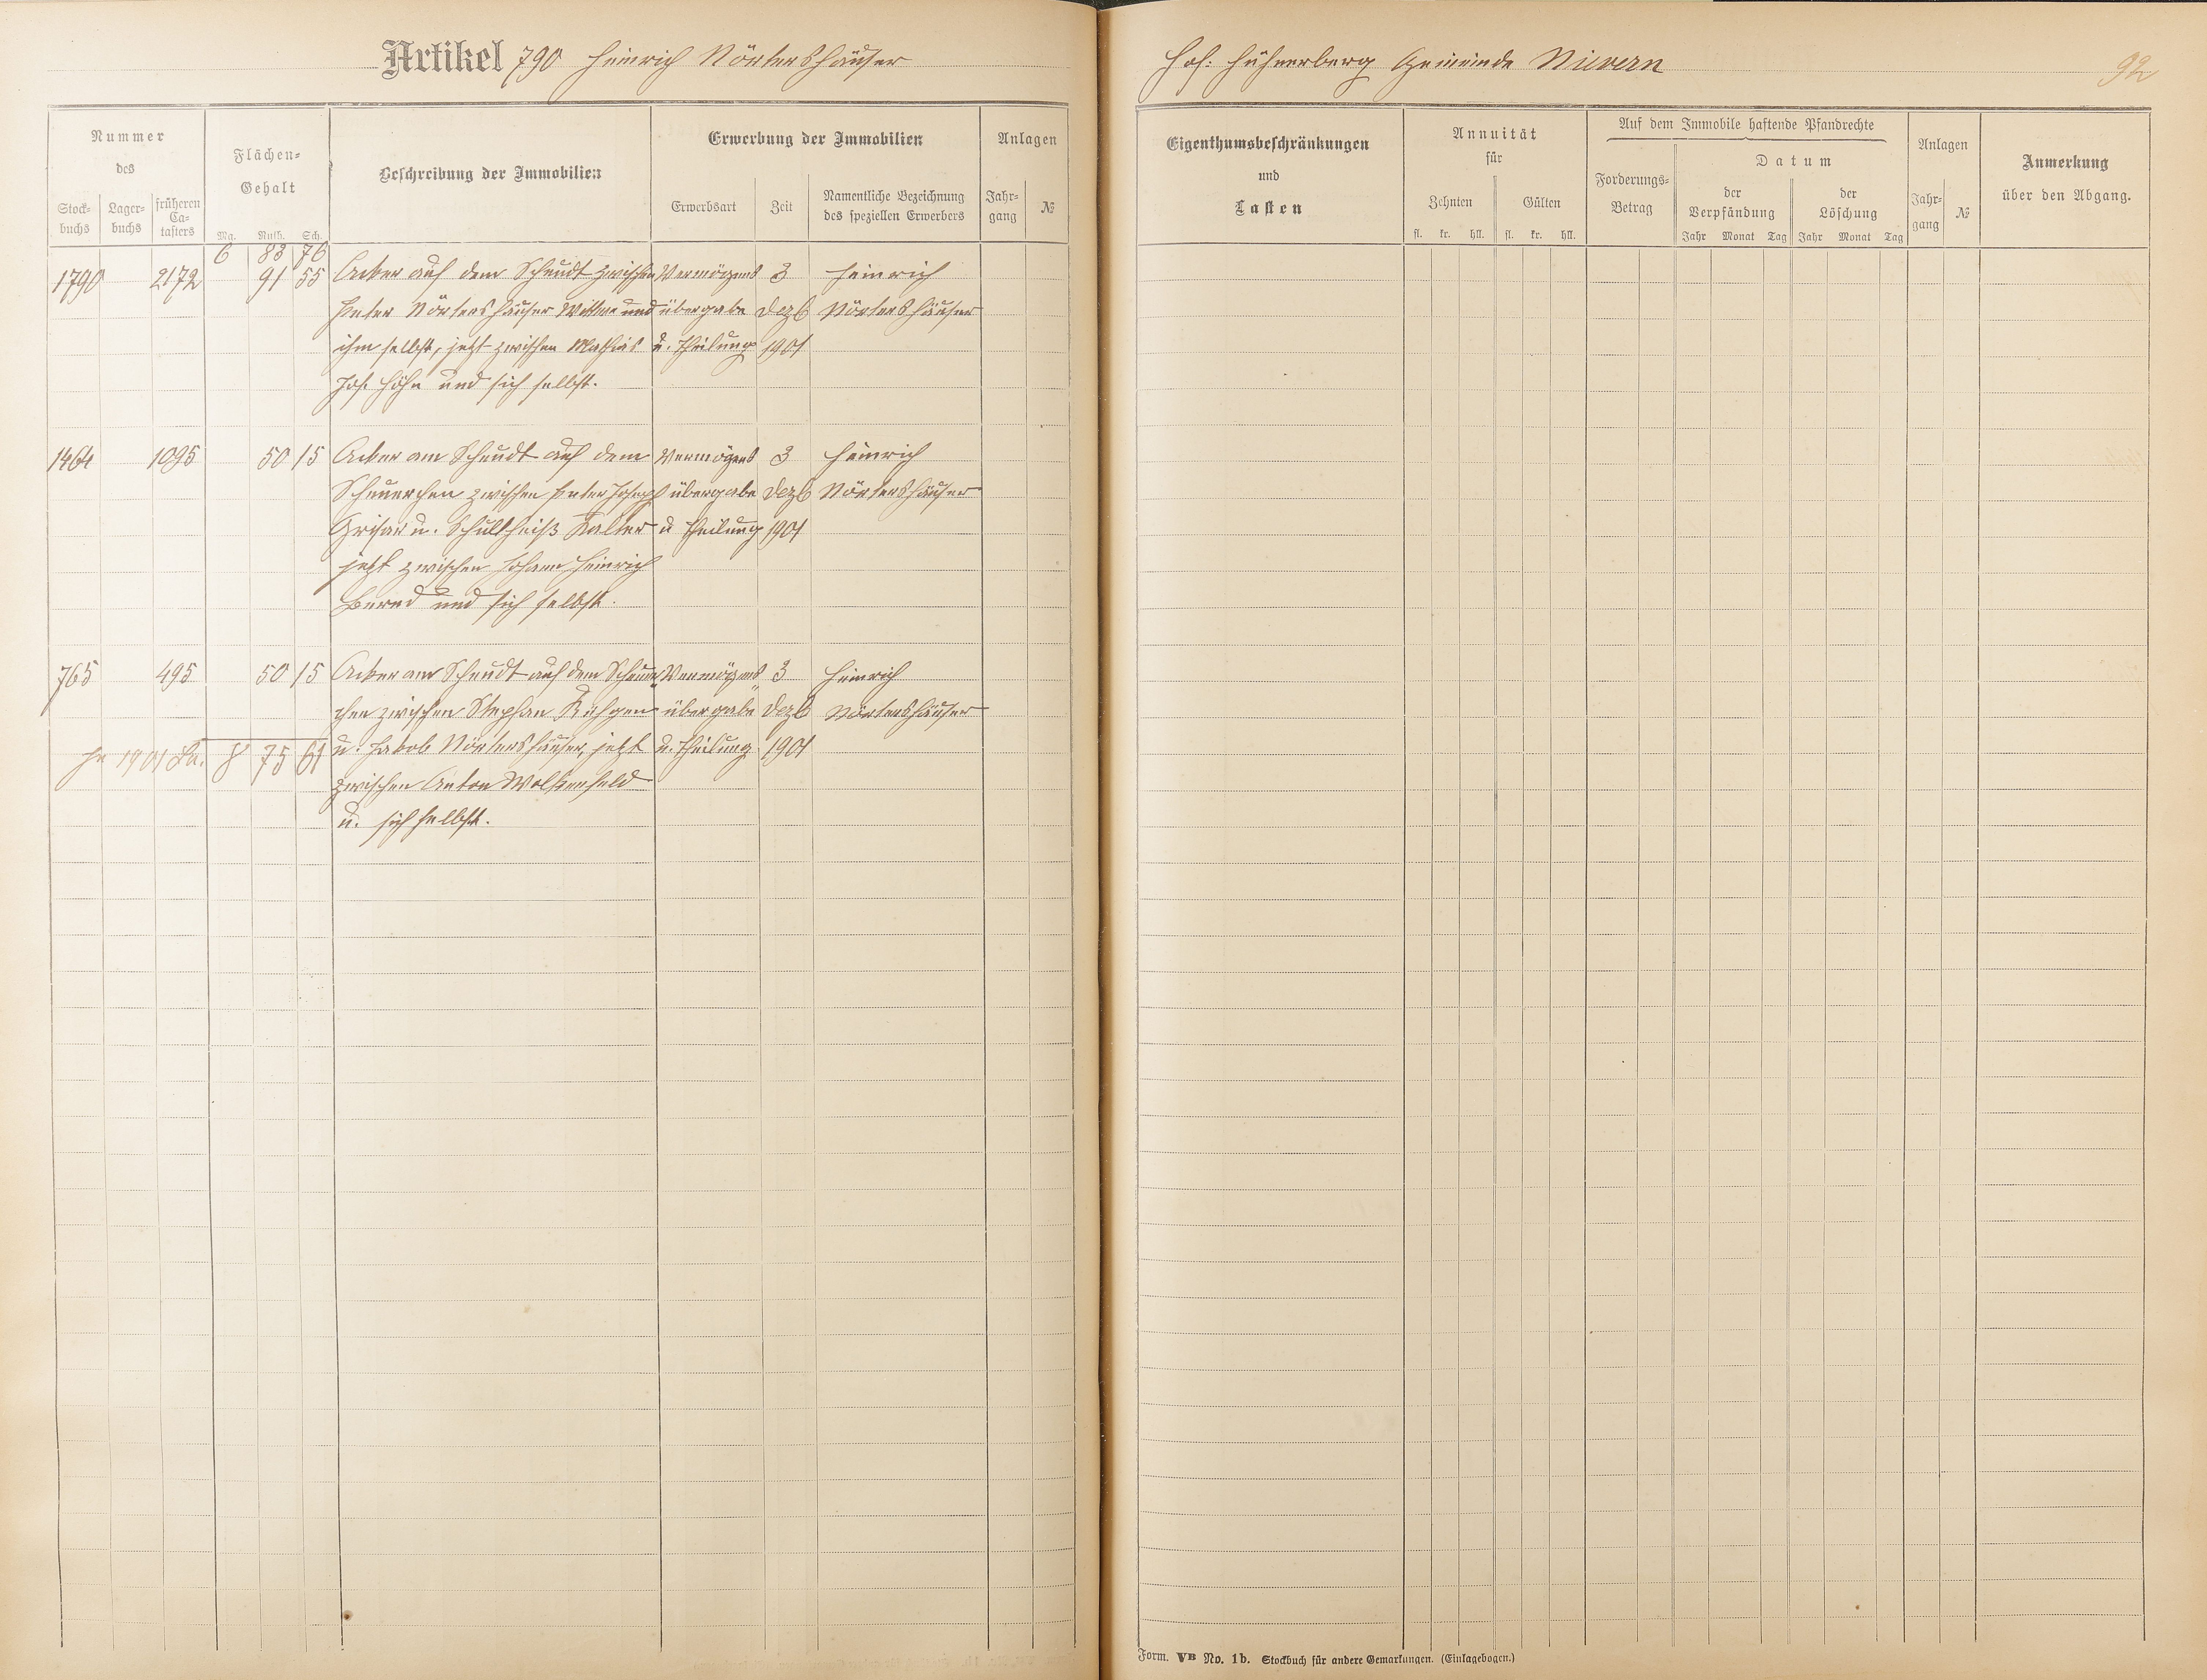 Artikel 790 Heinrich Nörtershäuser
Nummer
des
Stock-
buchs
Lager-
buchs
früheren
Ca-
tasters
Flächen-
Gehalt
Mg. Ruth. Sch.
Beschreibung der Immobilien
Erwerbung der Immobilien
Erwerbsart
Zeit
Namentliche Bezeichnung
des speziellen Erwerbers
Anlagen
Jahr-
gang
№
6 83 76
1790 2172 91 55 Acker auf dem Scheudt zwischen Vermögens 3 Heinrich
Peter Nörtershäuser Wittwe und übergabe Dezb Nörtershäuser
ihm selbst, jetzt zwischen Mathias u. Theilung 1901
Jos. Höhn und sich selbst.
1464 1095 50 15 Acker am Scheudt auf dem Vermögens 3 Heinrich
Scheuerchen zwischen Peter Joseph übergabe Dezb Nörtershäuser
Grisar u. Schultheiß Kalter u Theilung 1901
jetzt zwischen Johann Heinrich
und sich selbst.
765 495 50 15 Acker am Scheudt auf dem Scheuer Vermögens 3 Heinrich
chen zwischen Stephan übergabe Dezb Nörtershäuser
1901 8 75 61 u. Jakob Nörtershäuser, jetzt u. Theilung 1901
zwischen Anton Wolkenfeld
u. sich selbst.
Hof: Hühnerberg Gemeinde Nievern 92
Eigenthumsbeschränkungen
und
Lasten
Annuität
für
Zehnten
Gülten
fl. kr. hll. fl. kr. hll.
Auf dem Immobile haftende Pfandrechte
Forderungs-
Betrag
Datum
der
Verpfändung
der
Löschung
Jahr Monat Tag Jahr Monat Tag
Anlagen
Jahr-
gang
№
Anmerkung
über den Abgang.
Form. VB No. 1b. Stockbuch für andere Gemarkungen. (Einlagebogen.)